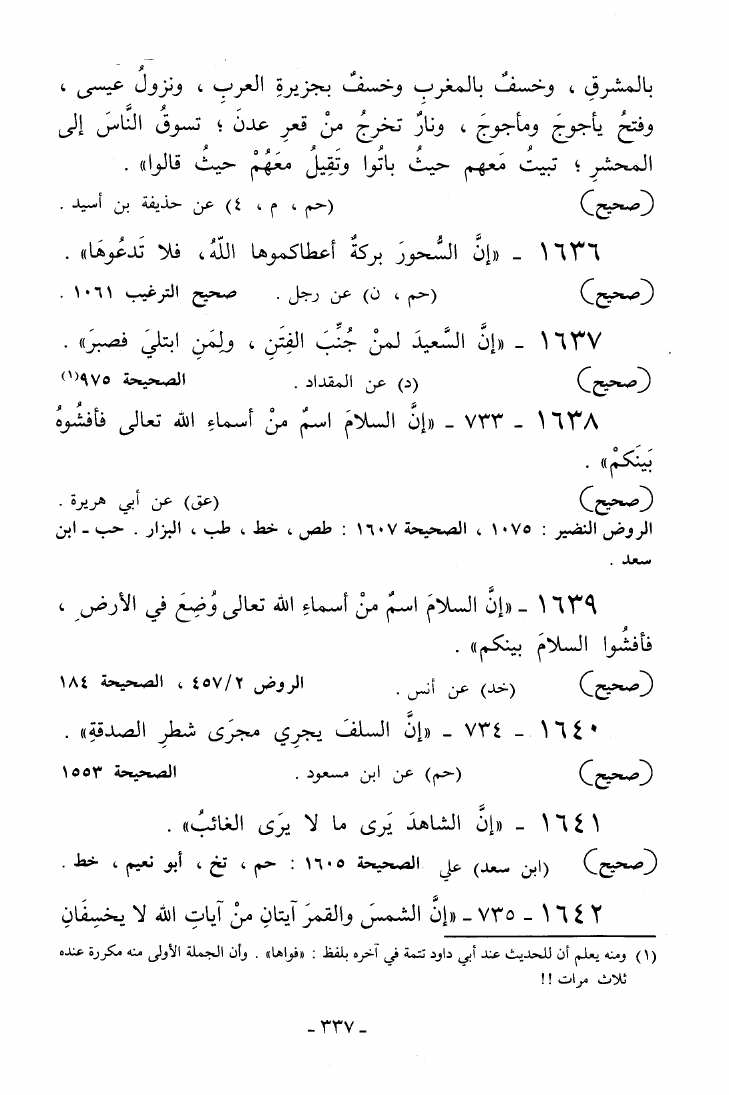 بالمشرقِ ، وخسفٌ بالمغربِ وخسفٌ بجزيرةِ العربِ ، ونزولُ عيسى ،
وفتحُ يأجوجَ ومأجوجَ ، ونارٌ تخرجُ منْ قعرِ عدنَ ؛ تسوقُ النَّاسَ إلى
المحشرِ ؛ تبيتُ مَعهم حيثُ باتُوا وتَقِيلُ معَهُمْ حيثُ قالوا» .
(صحيح) (حم ، م ، ٤) عن حذيفة بن أسيد .
١٦٣٦ - «إنَّ السُّحورَ بركةٌ أعطاكموها اللّهُ، فلا تَدعُوهَا» .
(صحيح) (حم ، ن) عن رجل . صحيح الترغيب ١٠٦١ .
١٦٣٧ - «إنَّ السَّعيدَ لمنْ جُنِّبَ الفِتَنِ ، ولِمَنِ ابتليَ فصبرَ» .
(صحيح) (د) عن المقداد . الصحيحة ٩٧٥(١)
١٦٣٨ - ٧٣٣ - «إنَّ السلامَ اسمٌ منْ أسماءِ الله تعالى فأفشُوهُ
بَينَكمْ» .
(صحيح) (عق) عن أبي هريرة .
الروض النضير : ١٠٧٥ ، الصحيحة ١٦٠٧ : طص ، خط ، طب ، البزار . حب - ابن
سعد .
١٦٣٩ - «إنَّ السلامَ اسمٌ منْ أسماءِ الله تعالى وُضِعَ في الأرضِ ،
فأفشُوا السلامَ بينكم» .
(صحيح) (خد) عن أنس . الروض ٤٥٧/٢ ، الصحيحة ١٨٤
١٦٤٠ - ٧٣٤ - «إنَّ السلفَ يجرِي مجرَى شطرِ الصدقةِ» .
(صحيح) (حم) عن ابن مسعود . الصحيحة ١٥٥٣
١٦٤١ - «إنَّ الشاهدَ يَرى ما لا يرَى الغائبُ» .
(صحيح) (ابن سعد) علي الصحيحة ١٦٠٥ : حم ، تخ ، أبو نعيم ، خط .
١٦٤٢ - ٧٣٥ - «إنَّ الشمسَ والقمرَ آيتانِ منْ آياتِ الله لا يخسِفَانِ
(١) ومنه يعلم أن للحديث عند أبي داود تتمة في آخره بلفظ : «فواها» . وأن الجملة الأولى منه مكررة عنده
ثلاث مرات !!
- ٣٣٧ -